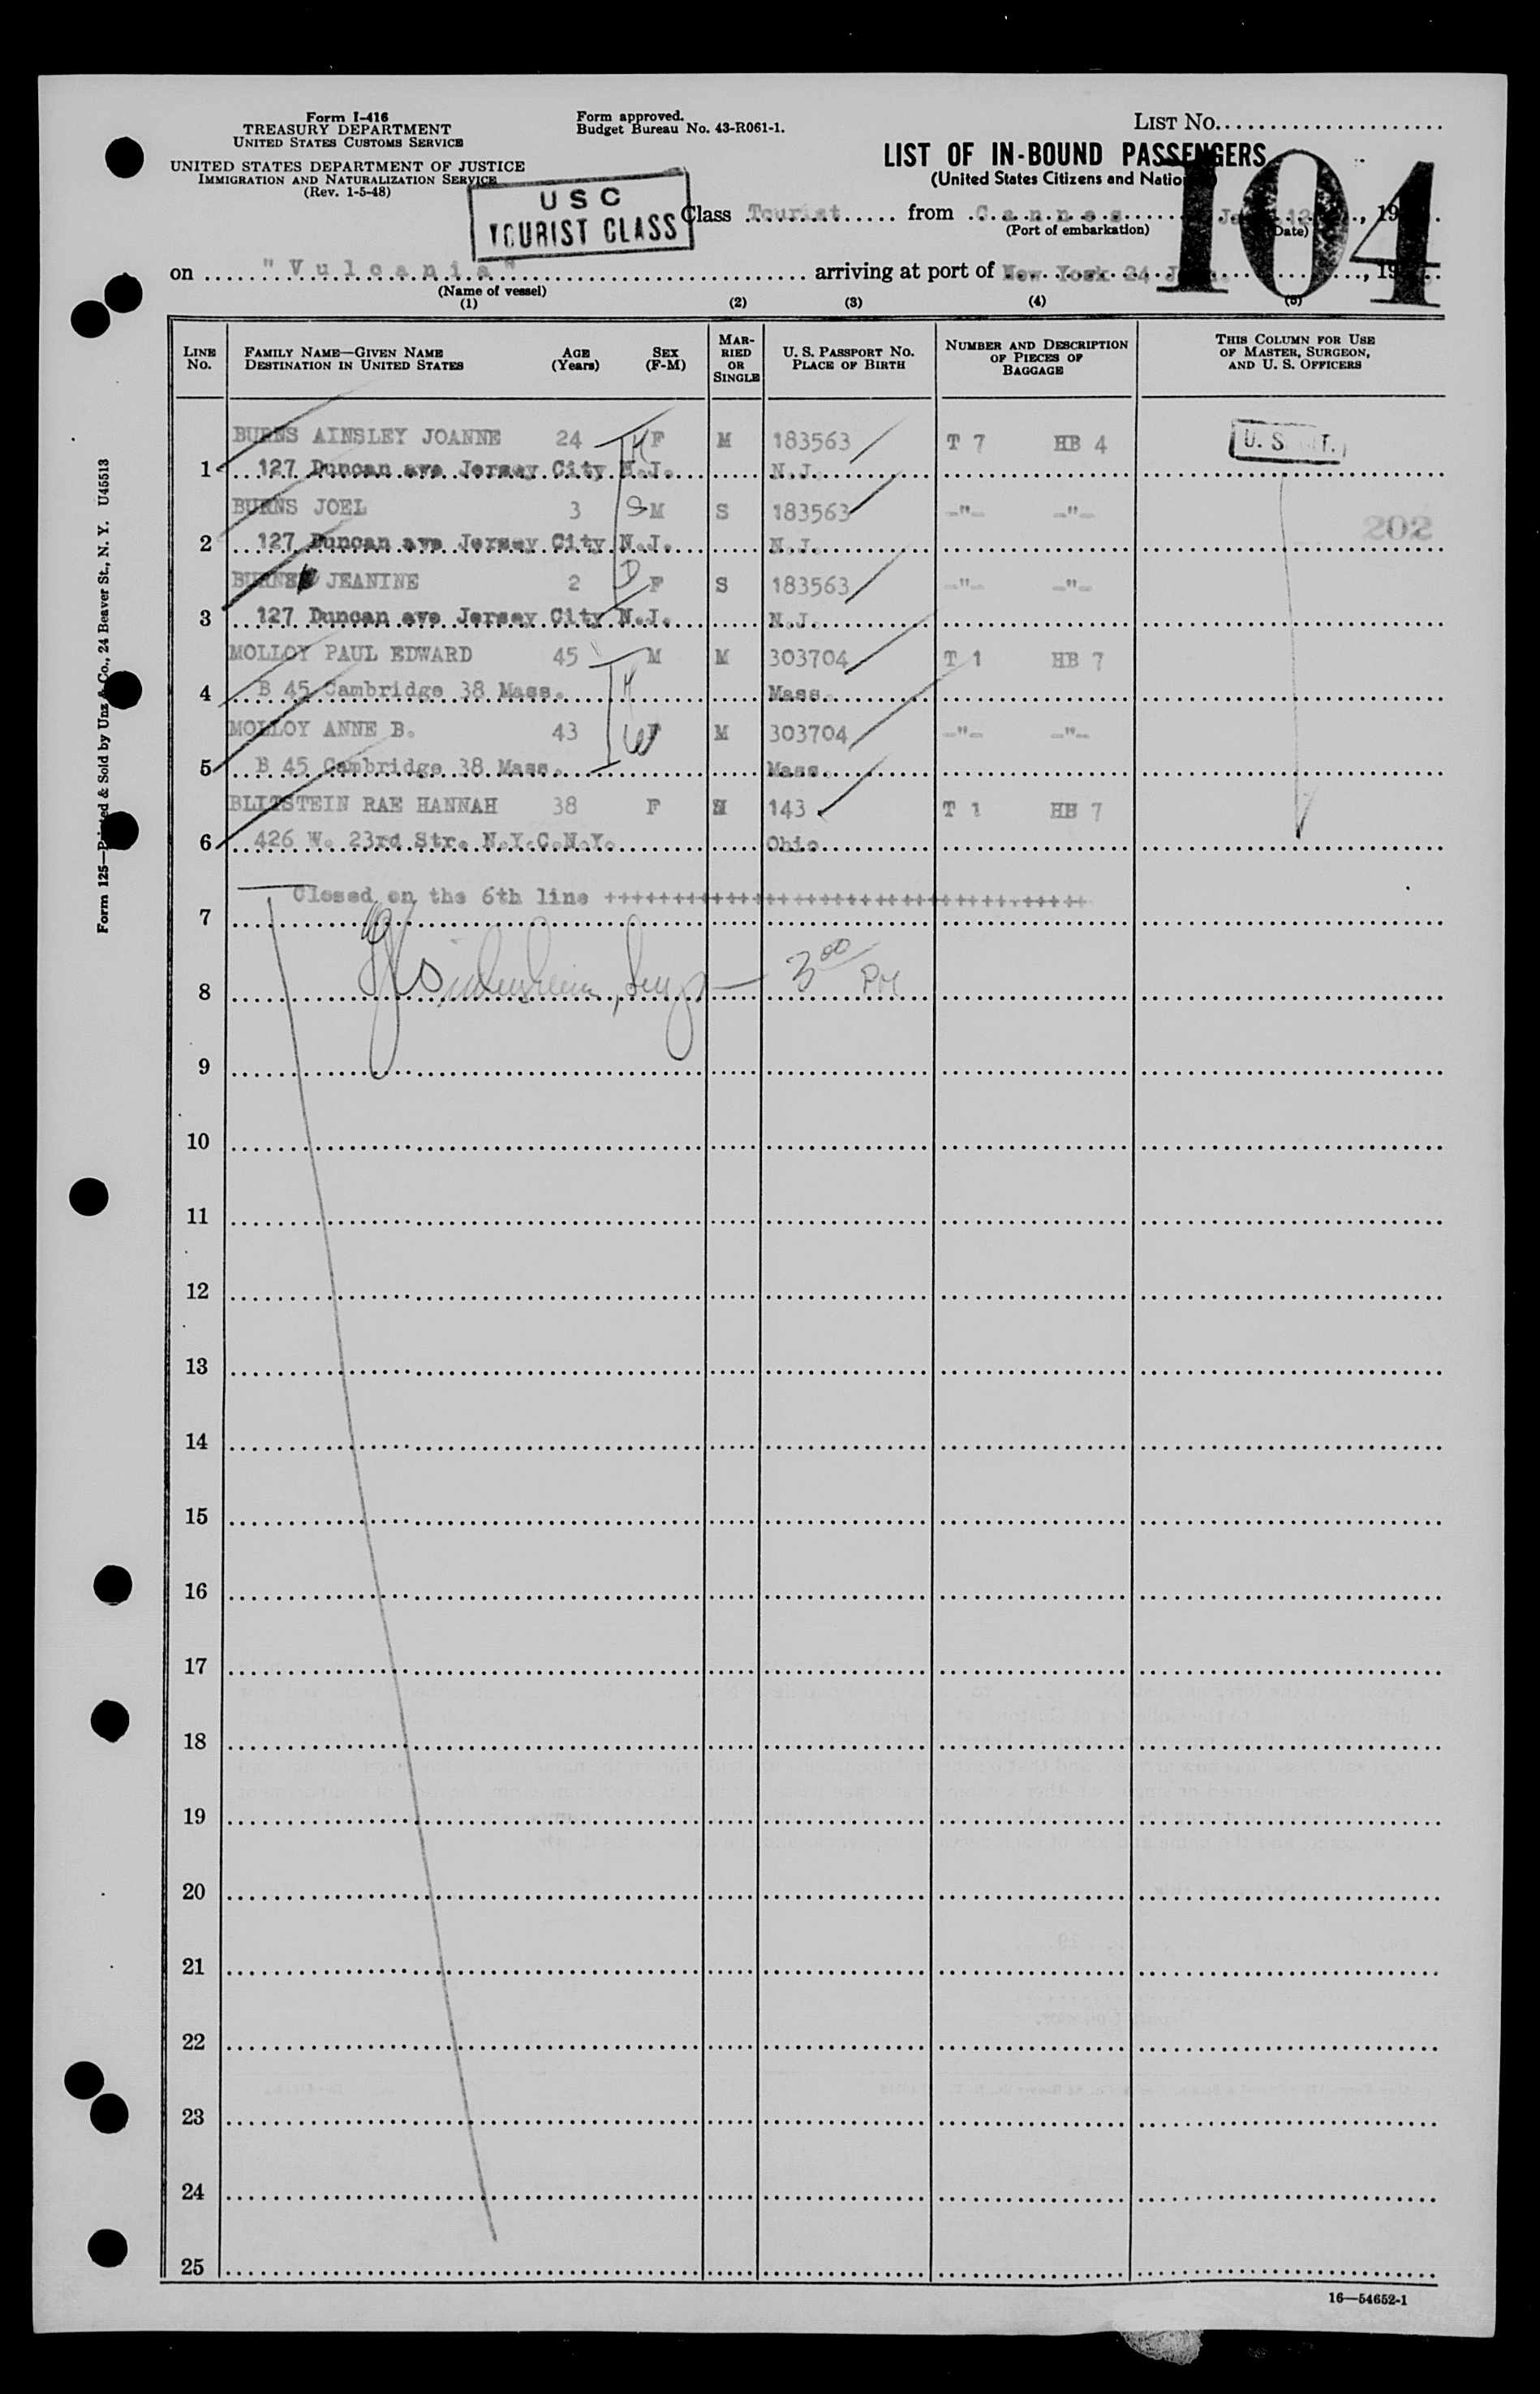 Form I-416
TREASURY DEPARTMENT
UNITED STATES CUSTOMS SERVICE
UNITED STATES DEPARTMENT OF JUSTICE
IMMIGRATION AND NATURALIZATION SERVICE
(Rev. 1-5-48)
Form approved.
Budget Bureau No. 43-R061-1.
LIST NO.
LIST OF IN-BOUND PASSENGERS
(United States Citizens and
104
USC
TOURIST CLASS
Class Tourist from Cannes 12, 19
(Port of embarkation) Date)
on "Vulcania" arriving at port of New York 24 , 19
(Name of vessel)
(1) (2) (3) (4) (5)
LINE No. FAMILY NAME—GIVEN NAME DESTINATION IN UNITED STATES AGE (Years) SEX (F-M) MARRIED OR SINGLE U. S. PASSPORT NO. PLACE OF BIRTH NUMBER AND DESCRIPTION OF PIECES OF BAGGAGE THIS COLUMN FOR USE OF MASTER, SURGEON, AND U. S. OFFICERS
BURNS AINSLEY JOANNE 24 F M 183563 T 7 HB 4 U. S. T.
1 127 Duncan ave Jersey City N.J. N.J.
BURNS JOEL 3 S M S 183563 -"- -"- 202
2 127 Duncan ave Jersey City N.J. N.J.
BURNS JEANINE 2 D F S 183563 -"- -"-
3 127 Duncan ave Jersey City N.J. N.J.
MOLLOY PAUL EDWARD 45 M M 303704 T 1 HB 7
4 B 45 Cambridge 38 Mass. H Mass.
MOLLOY ANNE B. 43 W F M 303704 -"- -"-
5 B 45 Cambridge 38 Mass. Mass.
BLITSTEIN RAE HANNAH 38 F 143 T 1 HB 7
6 426 W. 23rd Str. N.Y.C.N.Y. Ohio
Closed on the 6th line ++++++++++++++++++++++++++++++++++++
7
8 3 00 PM
9
10
11
12
13
14
15
16
17
18
19
20
21
22
23
24
25
16—54652-1
Form 125—Printed & Sold by Unz & Co., 24 Beaver St., N. Y. U45513